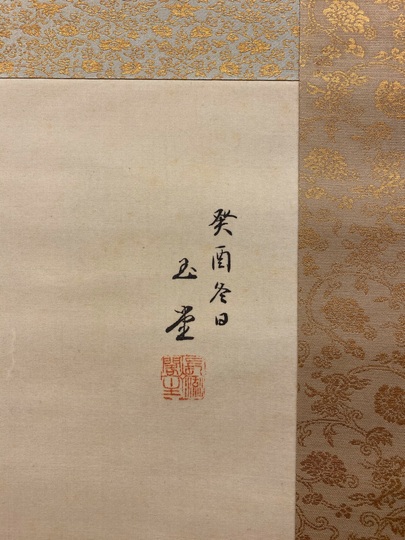 癸酉冬日
玉堂